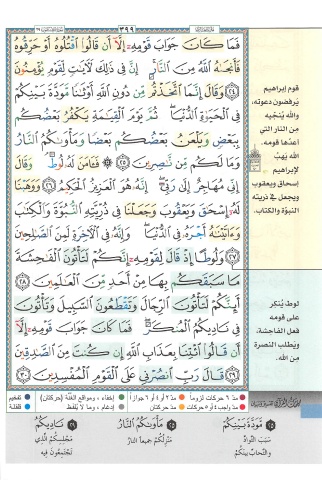 ٣٩٩
فَمَا كَانَ جَوَابَ قَوْمِهِۦٓ إِلَّآ أَن قَالُوا۟ ٱقْتُلُوهُ أَوْ حَرِّقُوهُ
فَأَنجَىٰهُ ٱللَّهُ مِنَ ٱلنَّارِ إِنَّ فِى ذَٰلِكَ لَءَايَٰتٍ لِّقَوْمٍ يُؤْمِنُونَ
﴿٢٤﴾ وَقَالَ إِنَّمَا ٱتَّخَذْتُم مِّن دُونِ ٱللَّهِ أَوْثَٰنًا مَّوَدَّةَ بَيْنِكُمْ
فِى ٱلْحَيَوٰةِ ٱلدُّنْيَا ثُمَّ يَوْمَ ٱلْقِيَٰمَةِ يَكْفُرُ بَعْضُكُم
بِبَعْضٍ وَيَلْعَنُ بَعْضُكُم بَعْضًا وَمَأْوَىٰكُمُ ٱلنَّارُ
وَمَا لَكُم مِّن نَّٰصِرِينَ ﴿٢٥﴾ فَـَٔامَنَ لَهُۥ لُوطٌ وَقَالَ
إِنِّى مُهَاجِرٌ إِلَىٰ رَبِّىٓ إِنَّهُۥ هُوَ ٱلْعَزِيزُ ٱلْحَكِيمُ ﴿٢٦﴾ وَوَهَبْنَا
لَهُۥٓ إِسْحَٰقَ وَيَعْقُوبَ وَجَعَلْنَا فِى ذُرِّيَّتِهِ ٱلنُّبُوَّةَ وَٱلْكِتَٰبَ
وَءَاتَيْنَٰهُ أَجْرَهُۥ فِى ٱلدُّنْيَا وَإِنَّهُۥ فِى ٱلْءَاخِرَةِ لَمِنَ ٱلصَّٰلِحِينَ
﴿٢٧﴾ وَلُوطًا إِذْ قَالَ لِقَوْمِهِۦٓ إِنَّكُمْ لَتَأْتُونَ ٱلْفَٰحِشَةَ
مَا سَبَقَكُم بِهَا مِنْ أَحَدٍ مِّنَ ٱلْعَٰلَمِينَ ﴿٢٨﴾
أَئِنَّكُمْ لَتَأْتُونَ ٱلرِّجَالَ وَتَقْطَعُونَ ٱلسَّبِيلَ وَتَأْتُونَ
فِى نَادِيكُمُ ٱلْمُنكَرَ فَمَا كَانَ جَوَابَ قَوْمِهِۦٓ إِلَّآ
أَن قَالُوا۟ ٱئْتِنَا بِعَذَابِ ٱللَّهِ إِن كُنتَ مِنَ ٱلصَّٰدِقِينَ
﴿٢٩﴾ قَالَ رَبِّ ٱنصُرْنِى عَلَى ٱلْقَوْمِ ٱلْمُفْسِدِينَ ﴿٣٠﴾
قوم إبراهيم
يرفضون دعوته،
والله يُنجّيه
من النار التي
أعدّها قومه.
الله يَهَبُ
لإبراهيم
إسحاق ويعقوب
ويجعل في ذريته
النبوّة والكتاب.
لوط يُنكر
على قومه
فعل الفاحشة،
ويطلب النصرة
من الله.
مدّ ٦ حركات لزوماً مدّ ٢ أو ٤ أو ٦ جوازاً إخفاء، ومواقع الغُنّة (حركتان) تفخيم
مدّ واجب ٤ أو ٥ حركات مدّ حركتان إدغام، وما لا يُلفظ قلقلة
٢٥ مَوَدَّةَ بَيْنِكُمْ
سَبَبَ التَّوَادِّ
وَالتَّحَابِّ بَيْنَكُمْ
٢٥ مَأْوَىٰكُمُ النَّارُ
مَنْزِلُكُمْ جَمِيعاً النَّارُ
٢٩ نَادِيكُمُ
مَجْلِسِكُمُ الَّذِي
تَجْتَمِعُونَ فِيهِ